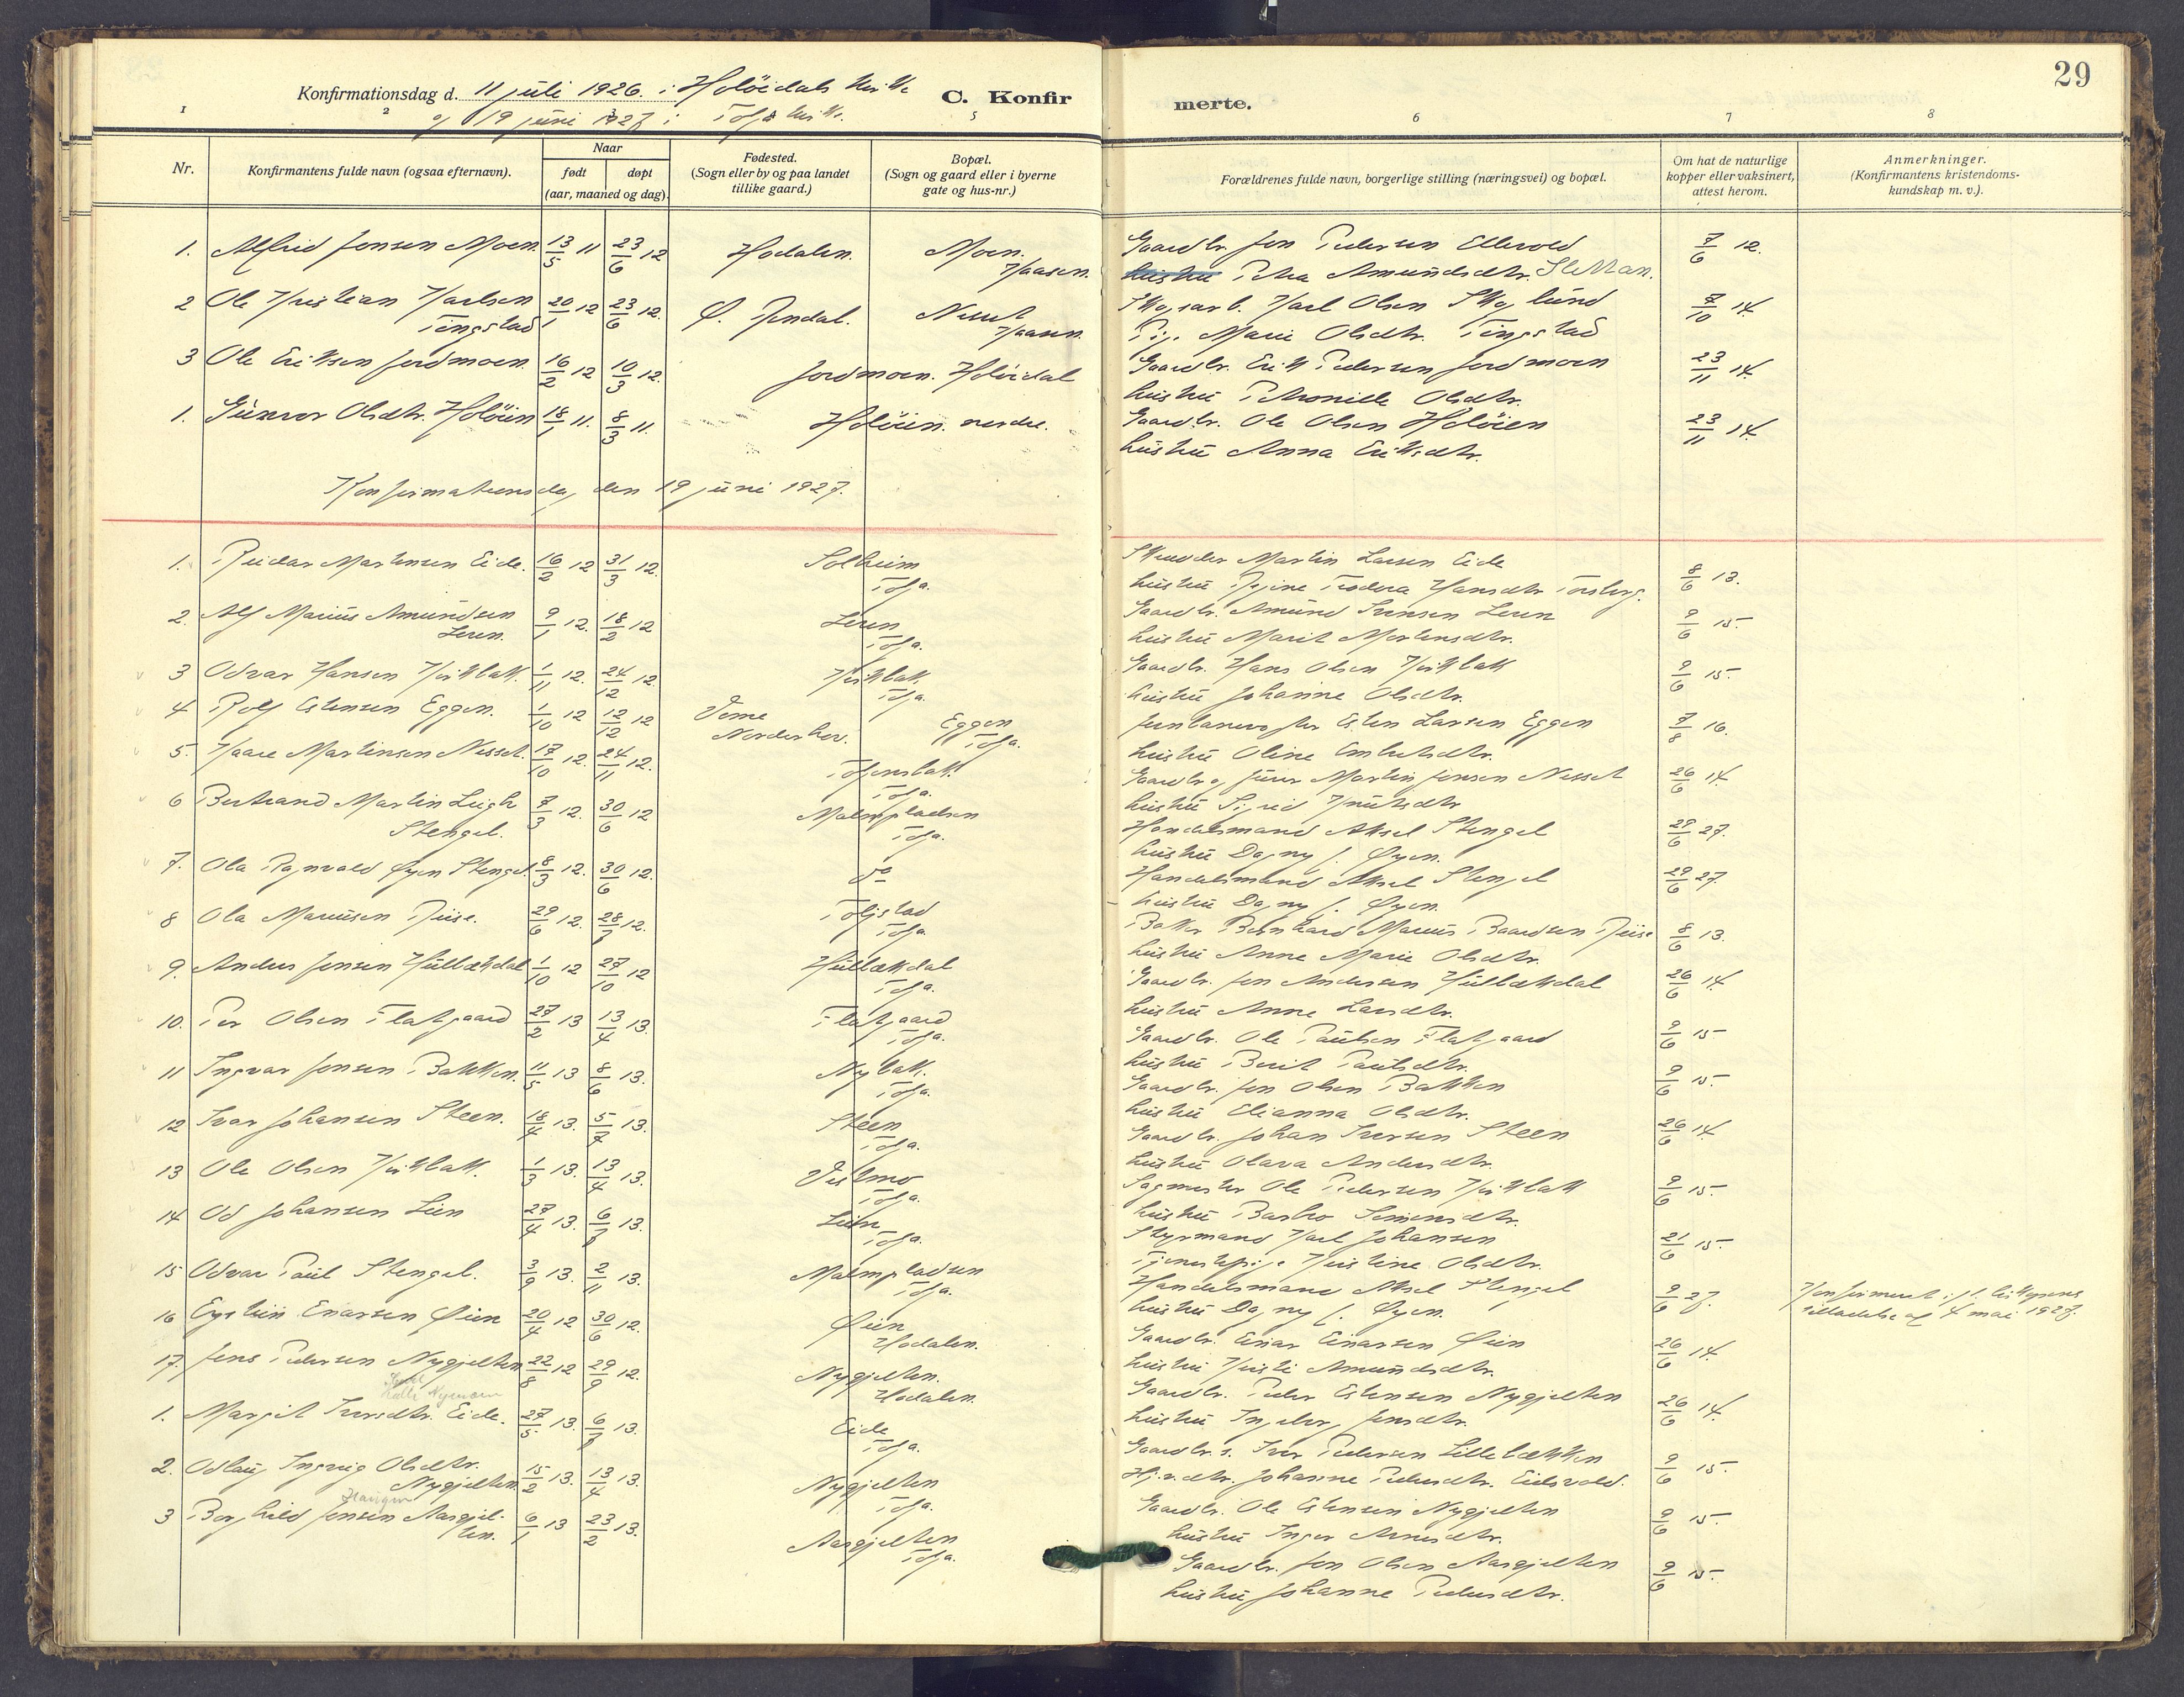 29
Konfirmationsdag d. 11 juli 1926. i Holöidals kirke
og 19 juni 1927 i Tolga kirke.
C. Konfirmerte.
1 2 5 6 7 8
Nr.
Konfirmantens fulde navn (ogsaa efternavn).
Naar
født døpt
(aar, maaned og dag).
Fødested.
(Sogn eller by og paa landet
tillike gaard.)
Bopæl.
(Sogn og gaard eller i byerne
gate og hus-nr.)
Forældrenes fulde navn, borgerlige stilling (næringsvei) og bopæl.
Om hat de naturlige
kopper eller vaksinert,
attest herom.
Anmerkninger.
(Konfirmantens kristendoms-
kundskap m. v.).
1. Alfred Jonsen Moen. 13/5 11 23/6 12 Hodalen. Moen. Gaardbr. Jon Pedersen Ellevold 7/6 12.
Haasen. hustru Petra Amundsdtr. Slettan.
2 Ole Kristian Karlsen 20/1 12 23/6 12. Ø. Rendal. Nesset Skogsarb. Karl Olsen Skoglund 7/10 14.
Tingstad Haasen. Pige Marie Olsdtr. Tingstad
3 Ole Eriksen Jordmoen. 16/2 12 10/3 12. Jordmoen. Holöidal Gaardbr. Erik Pedersen Jordmoen 23/11 14.
hustru Petronille Olsdtr.
1. Gunvor Olsdtr. Holöien 18/1 11. 8/3 11. Holöien. nerdre. Gaardbr. Ole Olsen Holöien 23/11 14.
hustru Anna Eriksdtr.
Konfirmationsdag den 19 juni 1927.
1. Reidar Martinsen Eide. 16/2 12 31/3 12. Solheim Skrædder Martin Larsen Eide 8/6 13.
Tolga. hustru Regine Teodora Hansdtr Torsberg.
2. Alf Marius Amundsen 9/1 12. 18/2 12 Leren Gaardbr. Amund Iversen Leren 9/6 15.
Leren. Tolga. hustru Marit Mortensdtr.
3 Odvar Hansen Kirkbak. 1/11 12. 24/12 12. Kirkbak. Gaardbr. Hans Olsen Kirkbak 9/6 15.
Tolga. hustru Johanne Olsdtr.
4 Rolf Estensen Eggen. 1/10 12 12/12 12 Veme Eggen Jernbanevogter Esten Larsen Eggen 7/8 16.
Norderhov. Tolga. hustru Oline Embretsdtr.
5. Kaare Martinsen Nesset. 17/10 12. 24/11 12. Tolgensbak. Gaardbr og furer Martin Jonsen Nesset 26/6 14
Tolga. hustru Sigrid Knutsdtr
6 Bertrand Martin Leigh 7/3 12. 30/6 12 Malmpladsen Handelsmand Aksel Stengel 29/6 27.
Stengel. Tolga. hustru Dagny f. Øyen.
7. Ola Ragnvald Øyen Stengel. 8/3 12. 30/6 12. do Handelsmand Aksel Stengel 29/6 27.
hustru Dagny f. Øyen.
8 Ola Mariusen Riise. 29/6 12. 28/7 12. Toljstad Baker Bernhard Marius Baardsen Riise 8/6 13.
Tolga hustru Anne Marie Olsdtr.
9. Anders Jonsen Hullækdal 1/10 12 27/10 12 Hullækdal Gaardbr. Jon Andersen Hullækdal 26/6 14.
Tolga. hustru Anne Larsdtr.
10. Per Olsen Flatgaard 27/2 13 13/4 13. Flatgaard Gaardbr. Ole Paulsen Flatgaard 9/6 15
Tolga. hustru Berit Paulsdtr.
11 Ingvar Jonsen Bakken. 11/5 13 8/6 13. Nybak. Gaardbr. Jon Olsen Bakken 9/6 15.
Tolga. hustru Elianna Olsdtr.
12 Ivar Johansen Steen. 18/4 13. 5/7 13. Steen Gaardbr. Johan Iversen Steen 26/6 14
Tolga. hustru Olava Andersdtr.
13 Ole Olsen Kirkbak. 1/3 13. 13/4 13. Vestmo Sagmester Ole Pedersen Kirkbak 9/6 15.
Tolga. hustru Barbro Simensdtr.
14 Od Johansen Lien 27/4 13. 6/7 13. Lien Styrmand Karl Johansen 21/6 15.
Tolga. Tjenestepige Kristine Olsdtr.
15 Odvar Paul Stengel. 3/9 13. 2/11 13. Malmpladsen Handelsmand Aksel Stengel 9/6 27. Konfirmert if. biskopens
Tolga. hustru Dagny f. Øyen. tilladelse af 4 mai 1927.
16 Eystein Einarsen Øien 20/4 12 30/6 12. Øien Gaardbr. Einar Einarsen Øien 26/6 14.
Hodalen. hustru Kristi Amundsdtr.
17. Jens Pedersen Nygjelten 22/8 12 29/9 12. Nygjelten. Gaardbr. Peder Estensen Nygjelten 26/6 14.
Hodalen. hustru Ingeborg Jensdtr.
1. Margit Iversdtr. Eide. 27/5 13. 6/7 13. Eide Gaardbr.s. Iver Pedersen Lillebækken 9/6 15.
Tolga. Hj.v.dtr. Johanne Pedersdtr. Eidsvold.
2. Odlaug Ingrig Olsdtr. 15/2 13. 13/4 13. Nygjelten Gaardbr. Ole Estensen Nygjelten 9/6 15.
Nygjelten. Tolga. hustru Inger Arnesdtr.
Haugen
3 Borghild Jonsen Aasgjel- 6/1 13 23/2 13. Aasgjelten Gaardbr. Jon Olsen Aasgjelten 9/6 15.
ten. Tolga. hustru Johanne Pedersdtr.